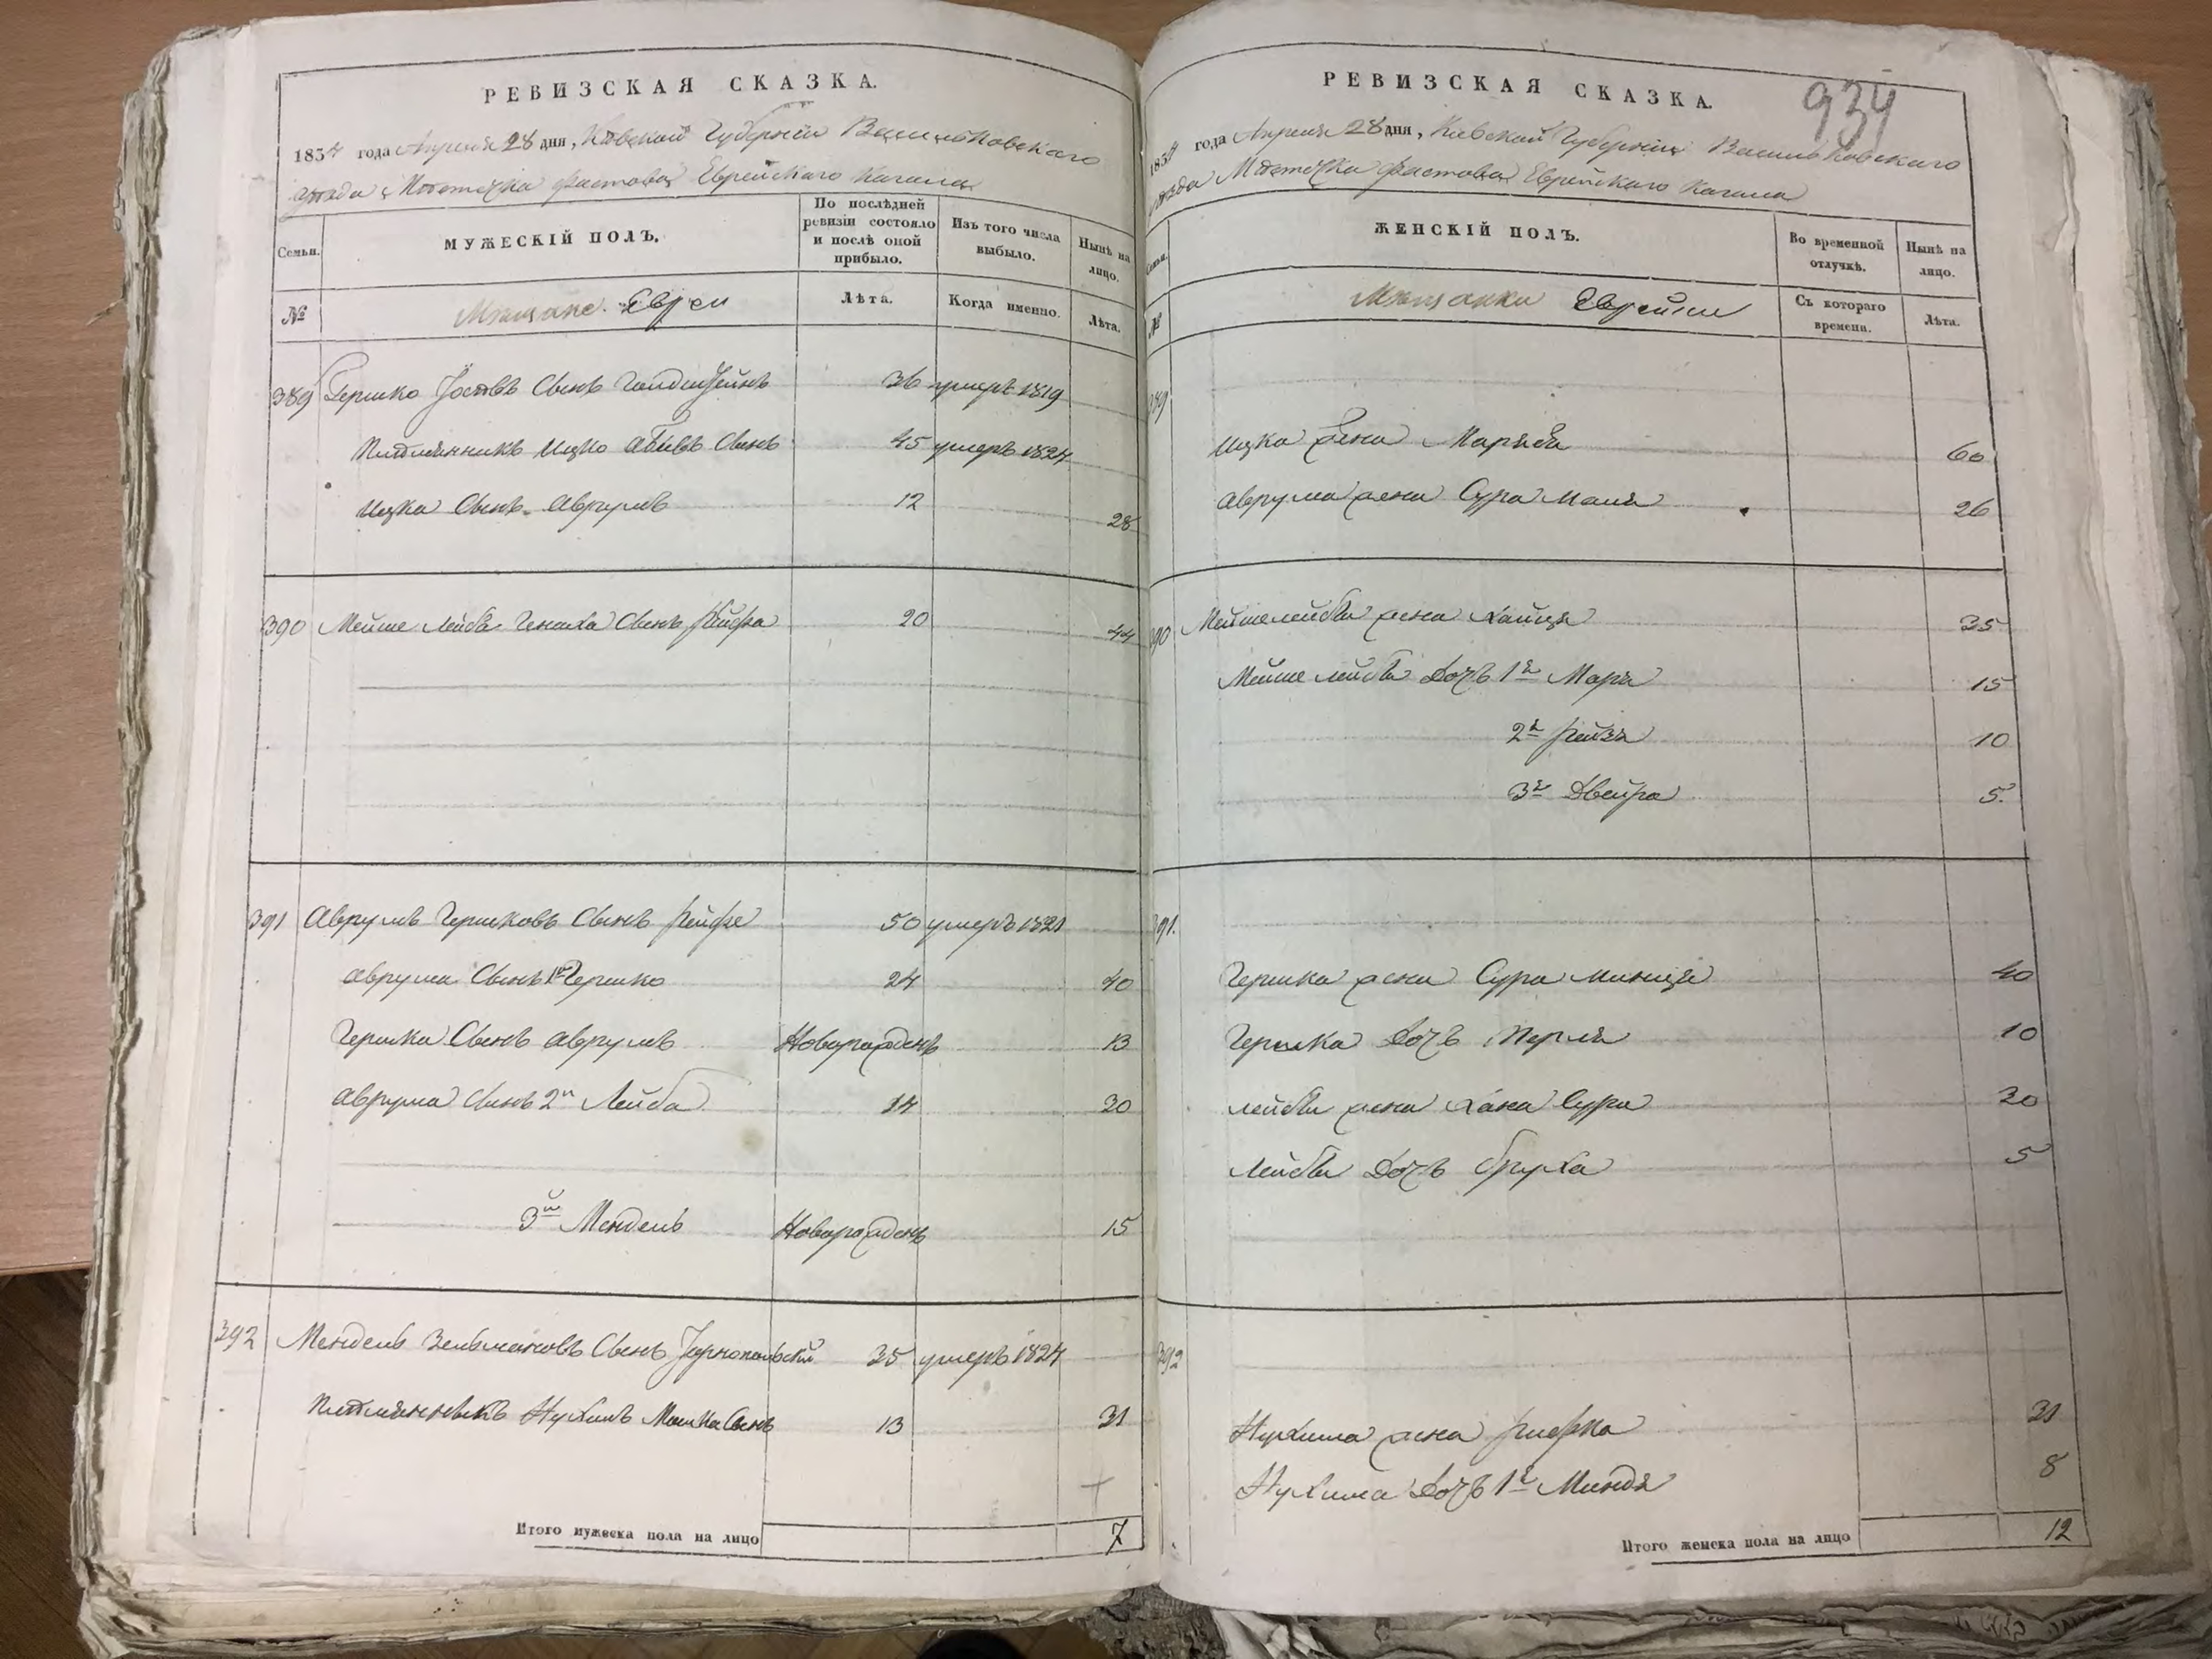 РЕВИЗСКАЯ СКАЗКА.
1834 года Апреля 28 дня, Киевской Губернии Васильковского
уезда Местечка Фастова Еврейского Кагала
Семьи.
МУЖЕСКІЙ ПОЛЪ.
По послѣдней ревизіи состояло и послѣ оной прибыло.
Изъ того числа выбыло.
Нынѣ на лицо.
№
Мещане Евреи
Лѣта.
Когда именно.
Лѣта.
389 Гершко сынъ 36 умеръ 1819
Племянникъ Ицко сынъ 45 умеръ 1824
Ицка сынъ Аврумъ 12 28
390 Мейше Лейба сынъ 20 44
391 Аврумъ Гершковъ сынъ 50 умеръ 1821
Аврума сынъ 1й Гершко 24 40
Гершка сынъ Аврумъ Новорожденъ 13
Аврума сынъ 2й Лейба 14 30
3й Мендель Новорожденъ 15
392 Мендель Зельмановъ сынъ Тарнопольский 35 умеръ 1824
Племянникъ Нухимъ Мошка сынъ 13 31
Итого мужеска пола на лицо 7
РЕВИЗСКАЯ СКАЗКА.
934
1834 года Апреля 28 дня, Киевской Губернии Васильковского
уезда Местечка Фастова Еврейского Кагала
Семьи.
ЖЕНСКІЙ ПОЛЪ.
Во временной отлучкѣ.
Нынѣ на лицо.
№
Мещанки Еврейки
Съ котораго времени.
Лѣта.
389
Ицка жена 60
Аврума жена Сура Маля 26
390 Мейше Лейбы жена Хайця 35
Мейше Лейбы дочь 1я Мара 15
2я Рейза 10
3я Двейра 5
391.
Гершка жена Сура Минця 40
Гершка дочь Перля 10
Лейбы жена Хана Сура 30
Лейбы дочь Бруха 5
392
Нухима жена Рифка 31
Нухима дочь 1я Миндя 8
Итого женска пола на лицо 12